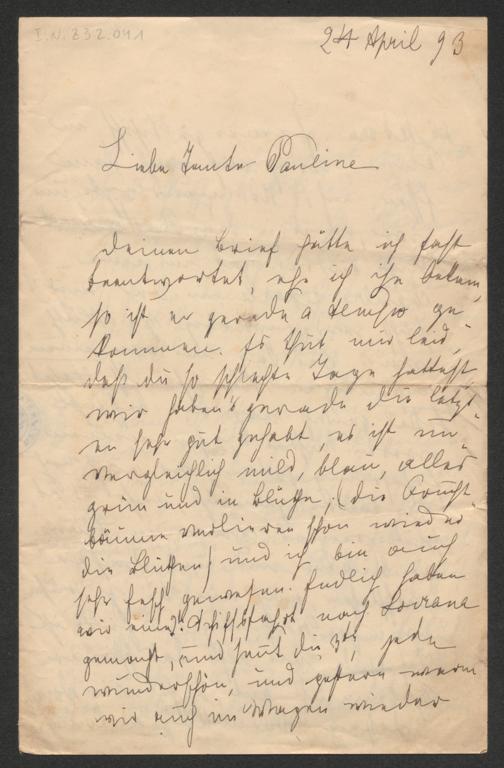 I.N. 232.041
24 April 93
Liebe Tante Pauline
deinen Brief hätte ich fast
beantwortet, ehe ich ihn bekam,
so ist er gerade a tempo ge
kommen. Es thut mir leid,
daß du so schlechte Tage hattest,
wir haben's gerade die letzt
en sehr gut gehabt, es ist un
vergleichlich mild, blau, alles
grün und in Blüthe, (die
bäume verlieren schon wieder
die Blüthen) und ich bin auch
sehr fesch gewesen. Endlich haben
wir eine Schiffsfahrt nach Lovrana
gemacht, und heut die 3te, jede
wunderschön, und gestern waren
wir auch im Wagen wieder